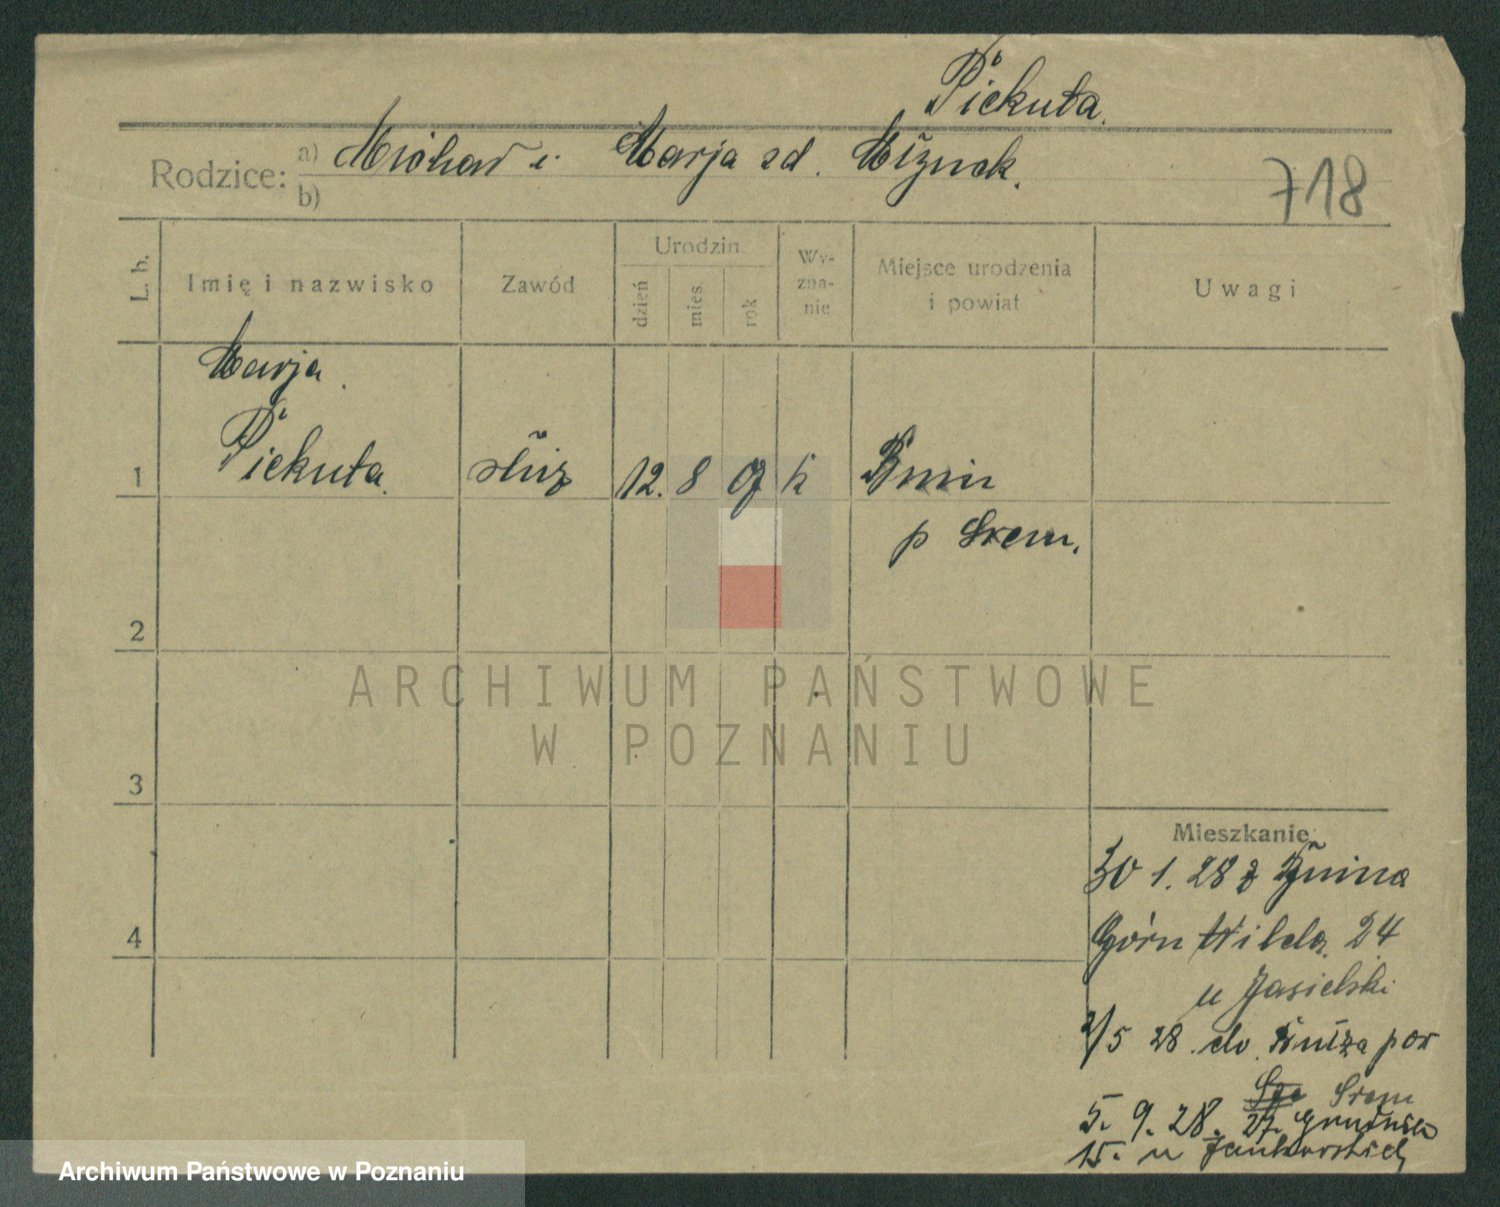 Piekuta.
Rodzice: a) Michał i Marja zd.
b)
718
L. b.
Imię i nazwisko
Zawód
Urodzin
dzień
mies.
rok
Wy-
zna-
nie
Miejsce urodzenia
i powiat
Uwagi
Marja
Piekuta.
1
służ
12. 8 07 k
Bnin
p Śrem.
2
3
4
ARCHIWUM PAŃSTWOWE
W POZNANIU
Mieszkanie
30 1. 28 z Bnina
Górn Wilda 24
u Jasielski
2/5 28. do pow
Śrem
5. 9. 28. 27. Grudnia
15. u
Archiwum Państwowe w Poznaniu